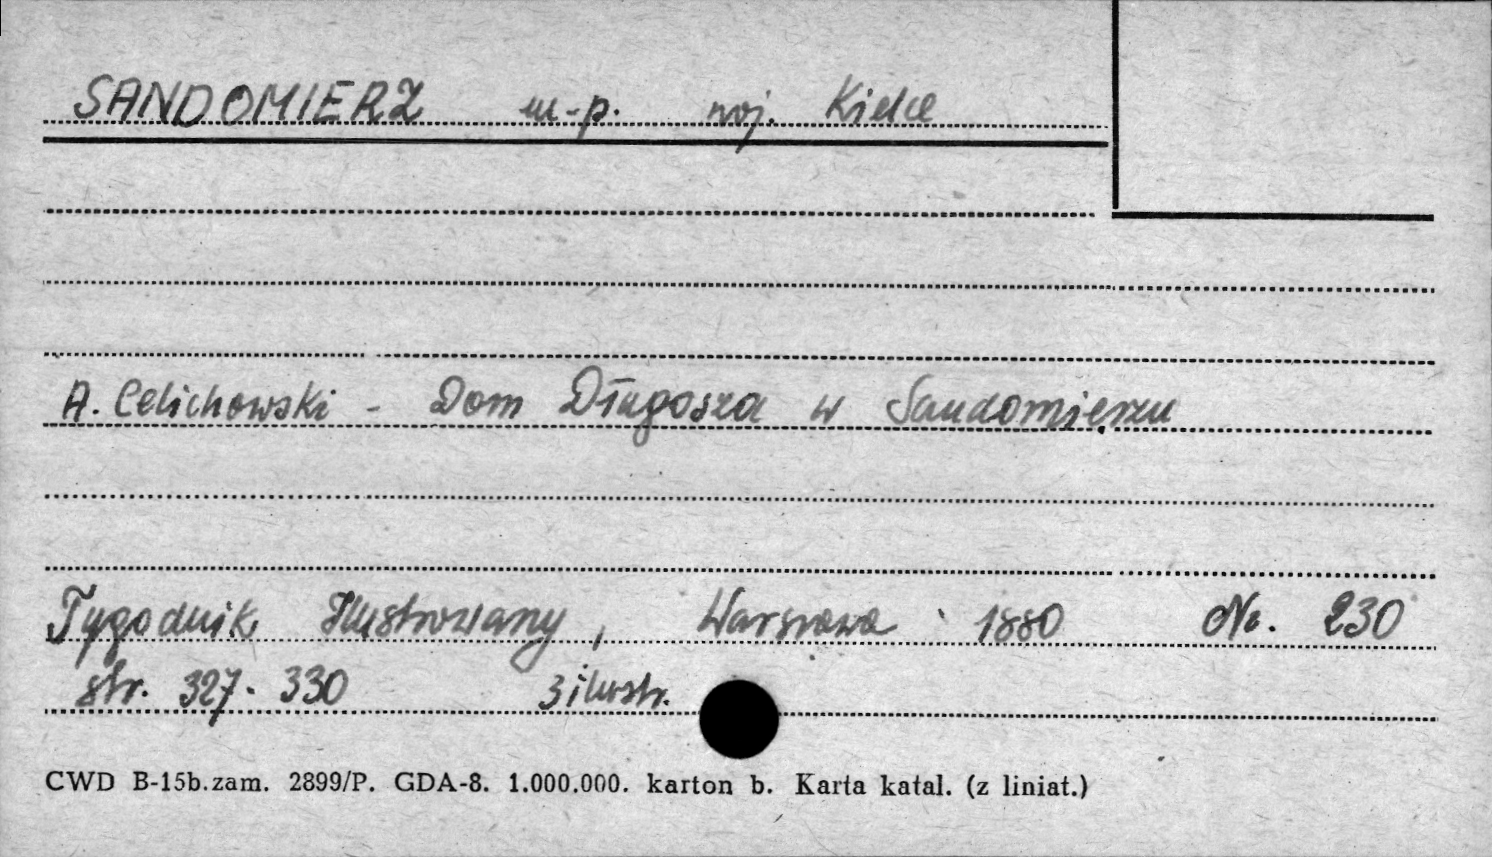 SANDOMIERZ m-p. woj. Kielce
A. Celichowski - Dom Długosza w Sandomierzu
Tygodnik Ilustrowany, Warszawa 1880 No. 230
str. 327-330 3 ilustr.
CWD B-15b.zam. 2899/P. GDA-8. 1.000.000. karton b. Karta katal. (z liniat.)